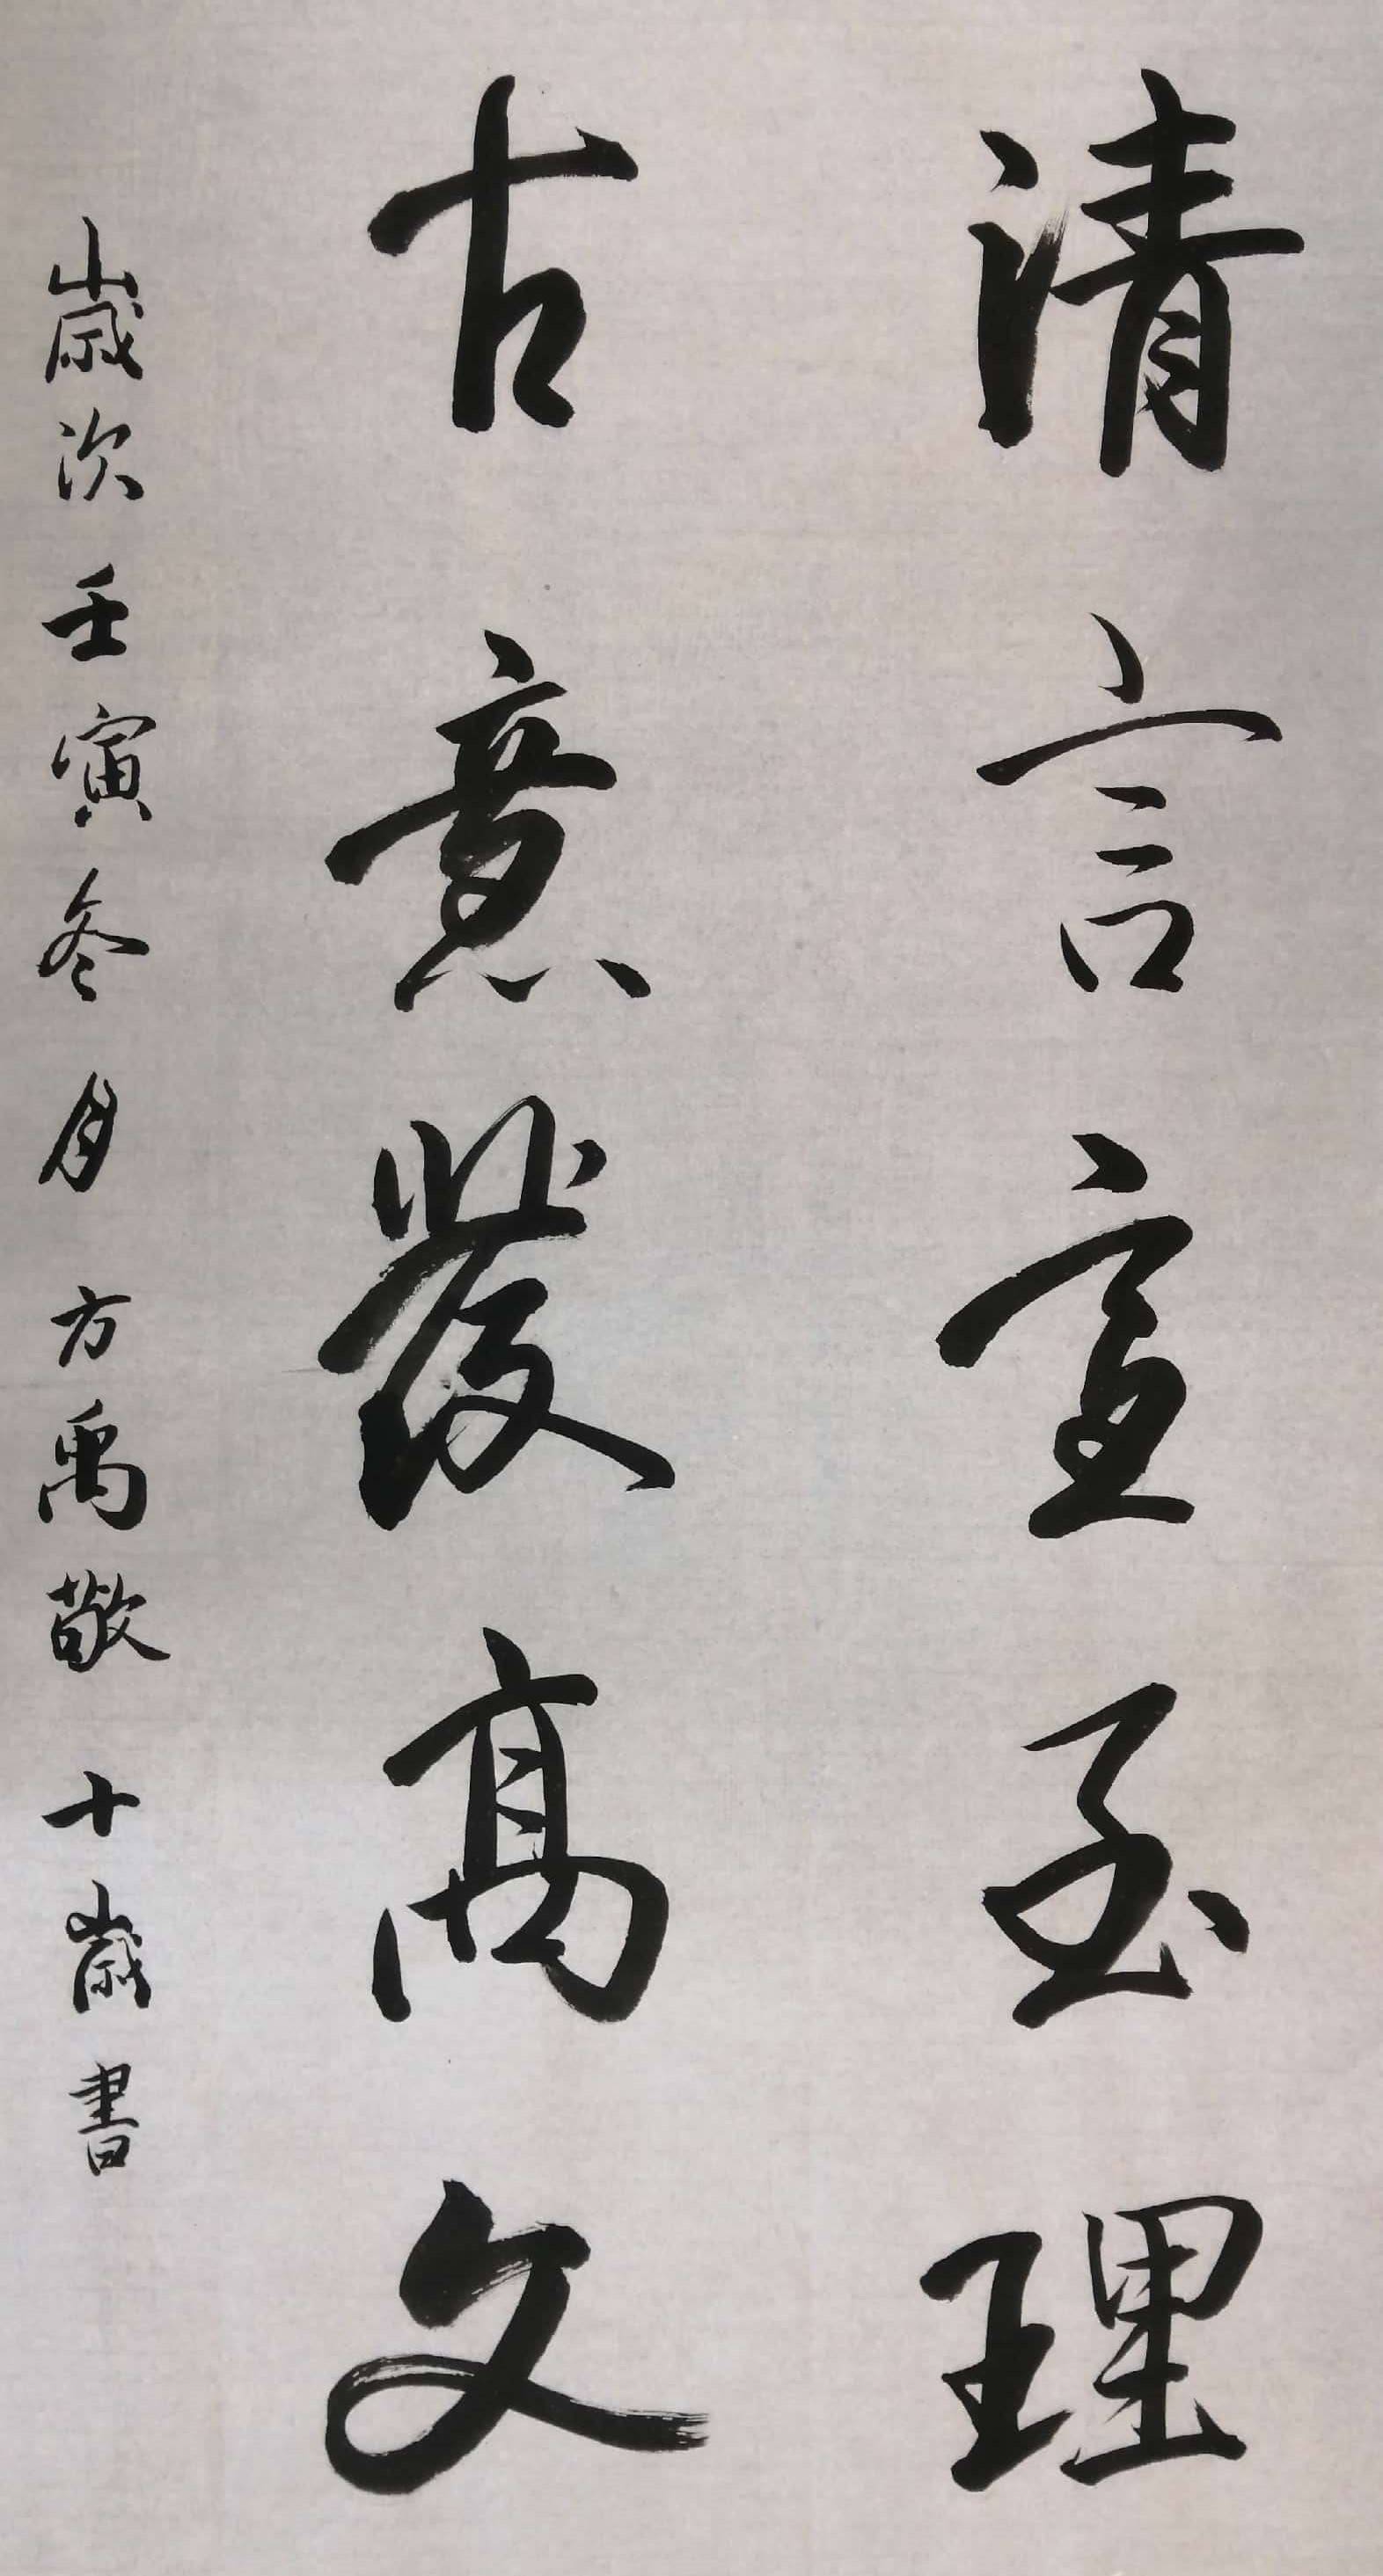 清言宣至理
古意發高文
歲次壬寅冬月方禹敬十歲書